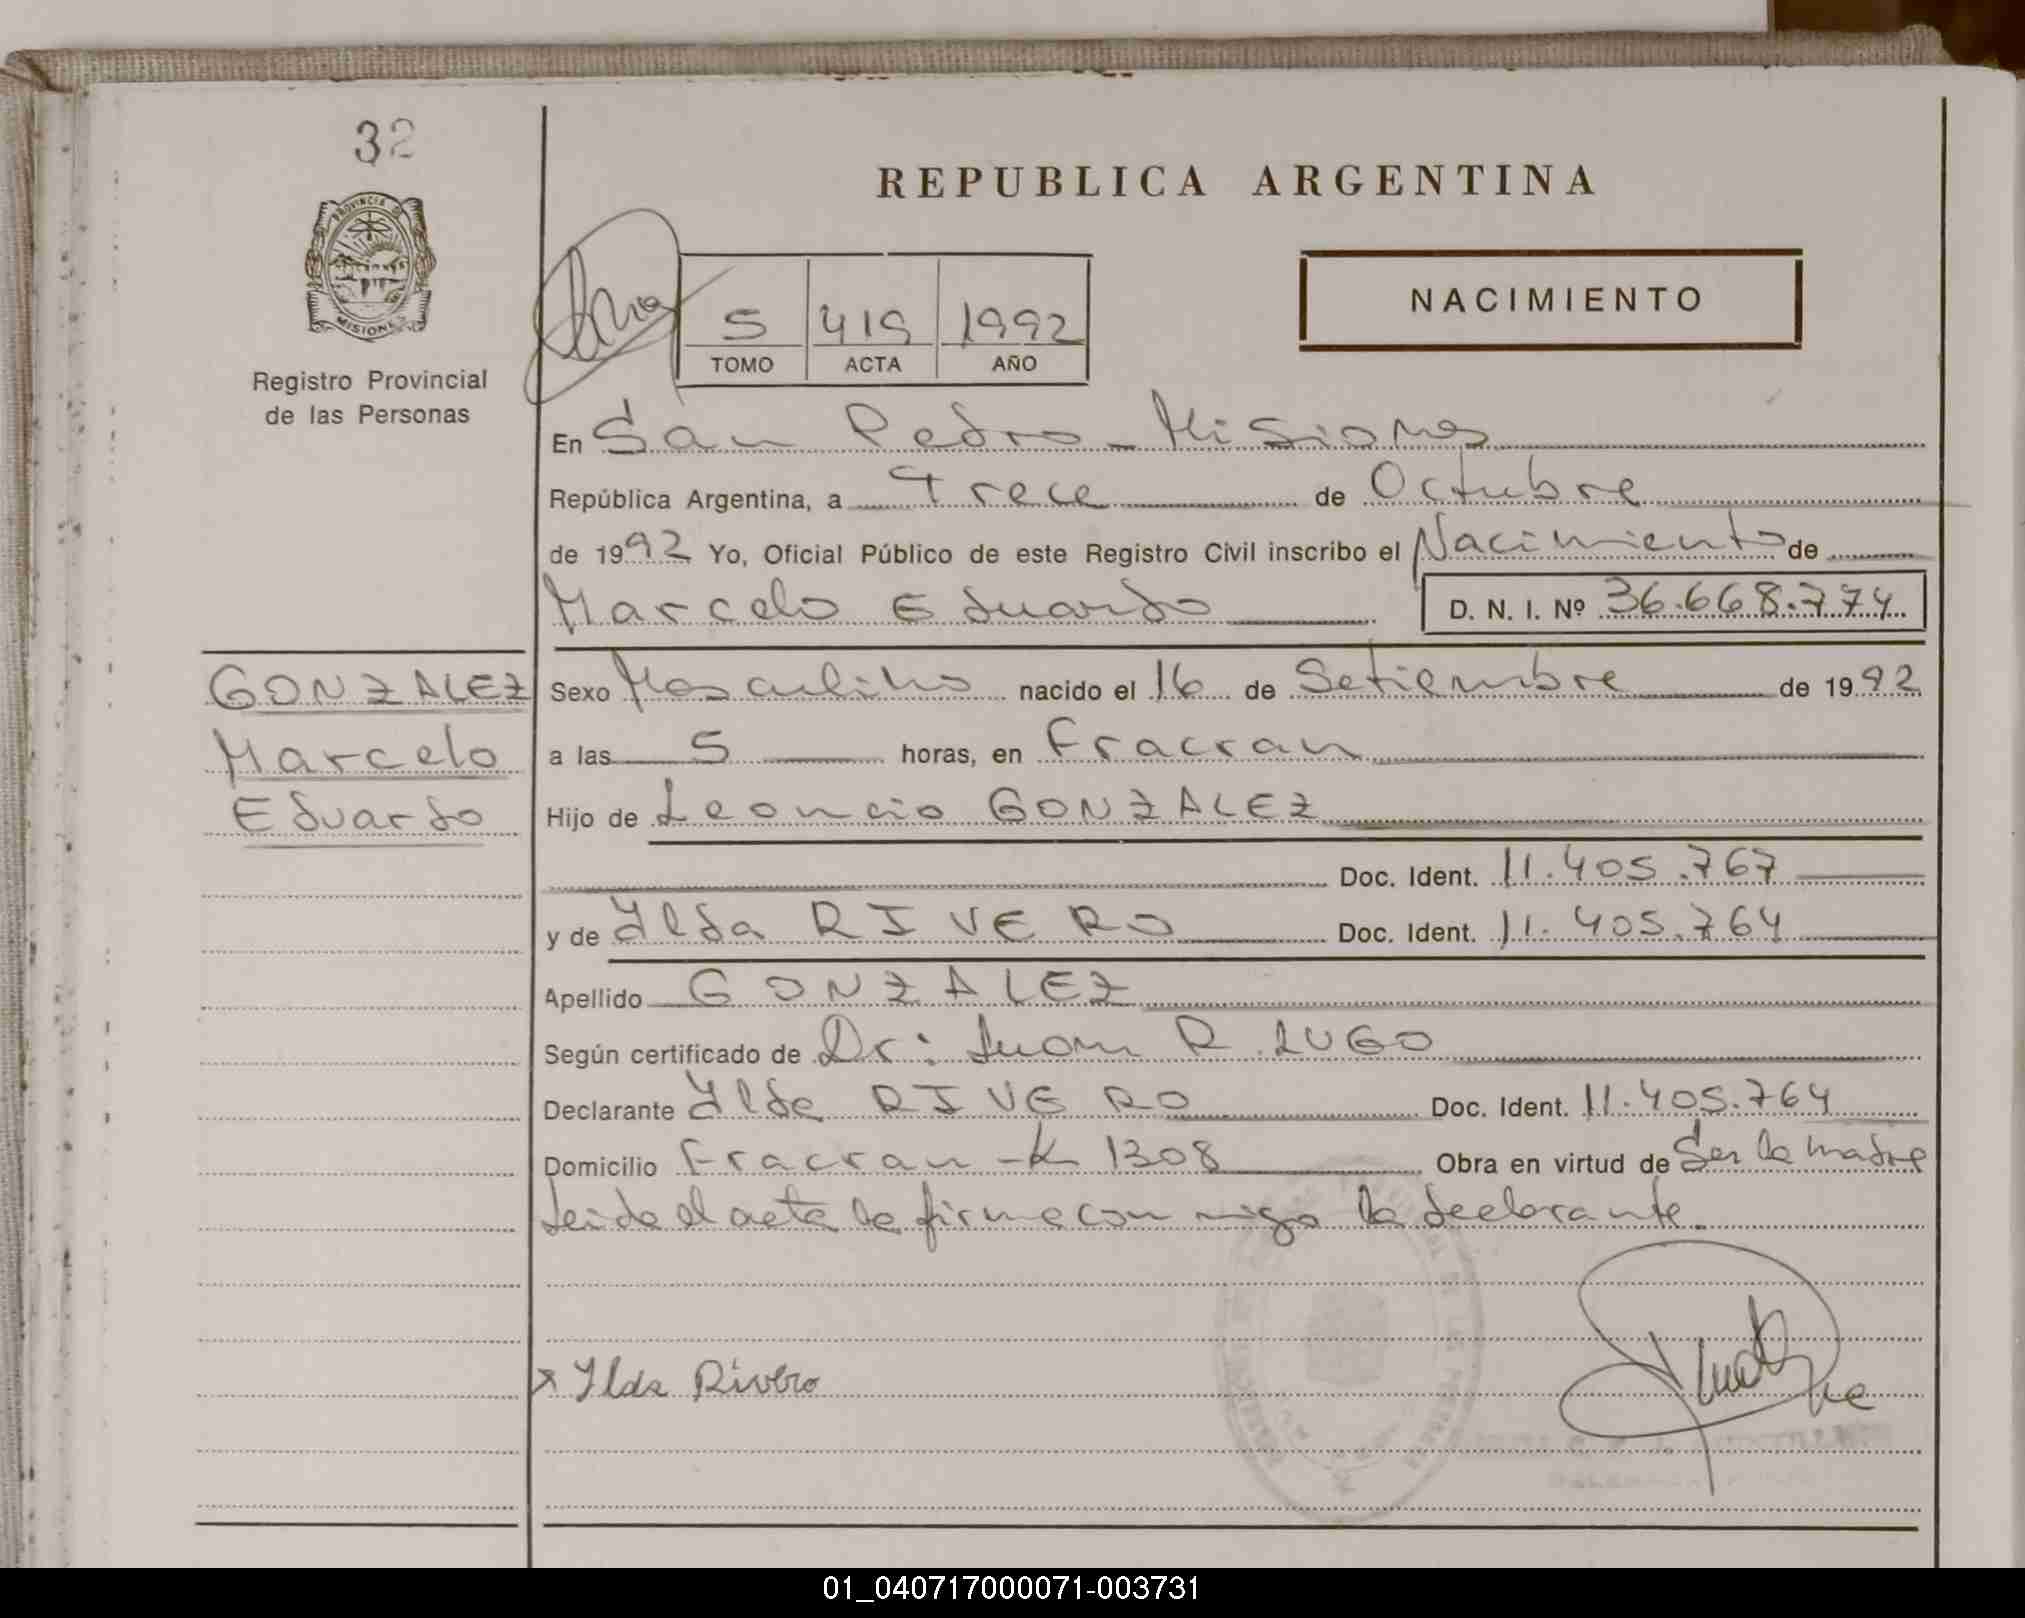 32
PROVINCIA DE
MISIONES
Registro Provincial
de las Personas
REPUBLICA ARGENTINA
NACIMIENTO
5 419 1992
TOMO ACTA AÑO
En San Pedro - Misiones
República Argentina, a Trece de Octubre
de 1992 Yo, Oficial Público de este Registro Civil inscribo el Nacimiento de
Marcelo Eduardo D. N. I. Nº 36.668.774
GONZALEZ
Marcelo
Eduardo
Sexo Masculino nacido el 16 de Setiembre de 1992
a las 5 horas, en Fracran
Hijo de Leoncio GONZALEZ
Doc. Ident. 11.405.767
y de Ylda RIVERO Doc. Ident. 11.405.764
Apellido GONZALEZ
Según certificado de Dr: Juan R. LUGO
Declarante Ylda RIVERO Doc. Ident. 11.405.764
Domicilio Fracran - K 1308 Obra en virtud de Ser la madre
Leida el acta la firma con migo la declarante.
Ylda Rivero
01_040717000071-003731